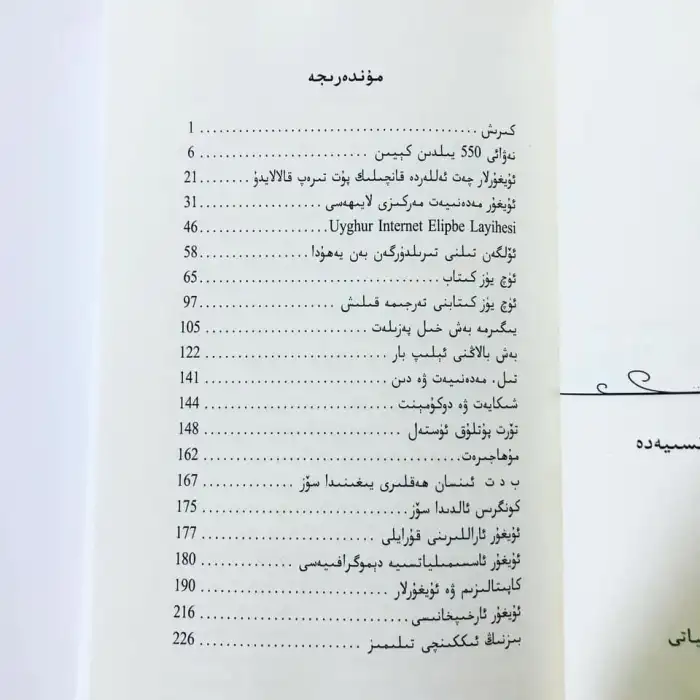 مۇندەرىجە
كىرىش ........................................ 1
نەۋائى 550 يىلدىن كېيىن ........................ 6
ئۇيغۇرلار چەت ئەللەردە قانچىلىك پۇت تىرەپ قالالايدۇ ........ 21
ئۇيغۇر مەدەنىيەت مەركىزى لايىھەسى .................... 31
Uyghur Internet Elipbe Layihesi .................... 46
ئۆلگەن تىلنى تىرىلدۈرگەن بەن يەھۇدا .................. 58
ئۈچ يۈز كىتاب .............................. 65
ئۈچ يۈز كىتابنى تەرجىمە قىلىش ...................... 97
يىگىرمە بەش خىل پەزىلەت ........................ 105
بەش بالاڭنى ئېلىپ بار .......................... 122
تىل، مەدەنىيەت ۋە دىن .......................... 141
شىكايەت ۋە دوكۇمېنت .......................... 144
تۆرت پۇتلۇق ئۈستەل .......................... 148
مۇھاجىرەت ................................ 162
ب د ت ئىنسان ھەقلىرى يىغىنىدا سۆز .............. 167
كونگرىس ئالدىدا سۆز .......................... 175
ئۇيغۇر ئاراللىرىنى قۇرايلى ........................ 177
ئۇيغۇر ئاسسىمىلياتسىيە دېموگرافىيەسى .............. 180
كاپىتالىزىم ۋە ئۇيغۇرلار ........................ 190
ئۇيغۇر ئارخىپخانىسى .......................... 216
بىزنىڭ ئىككىنچى تىلىمىز ........................ 226